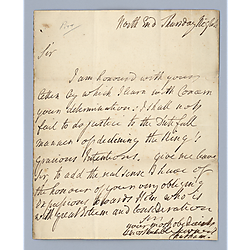 North End Thursday Night
Sir
I am honour'd with your
letter by which I learn with Concern
your determination: I shall not
fail to do justice to the Dutifull
manner of declining the King's
Gracious Intentions. Give me leave
Sir, to add the real sense I have of
the honour of your very obliging
expressions towards Him who is
with great Esteem and Consideration
Sir
your most obedient
humble Servant
Chatham